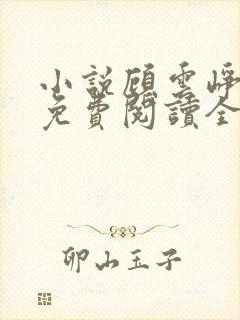 小說顧雲崢
免費閱讀全
卯山玉子